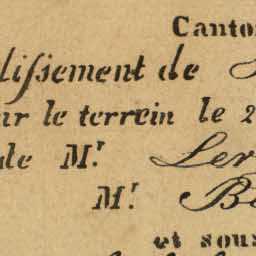 Canto
lissement de
ur le terrein le 2
de M.r Ler
M.r B
et sous